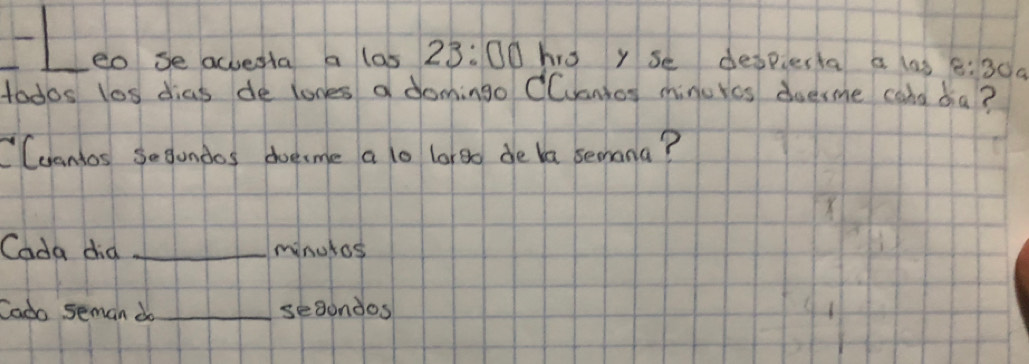 - Leo se acuesta a las 23:00 hrs y se despierta a las 8:30a
todos los dias de lones a domingo ¿Cuantos minutos doerme cada dia?
¿Cuantos segundos duerme a lo largo de la semana?
Cada dia ________ minutos
Cada semanda ________ segondos